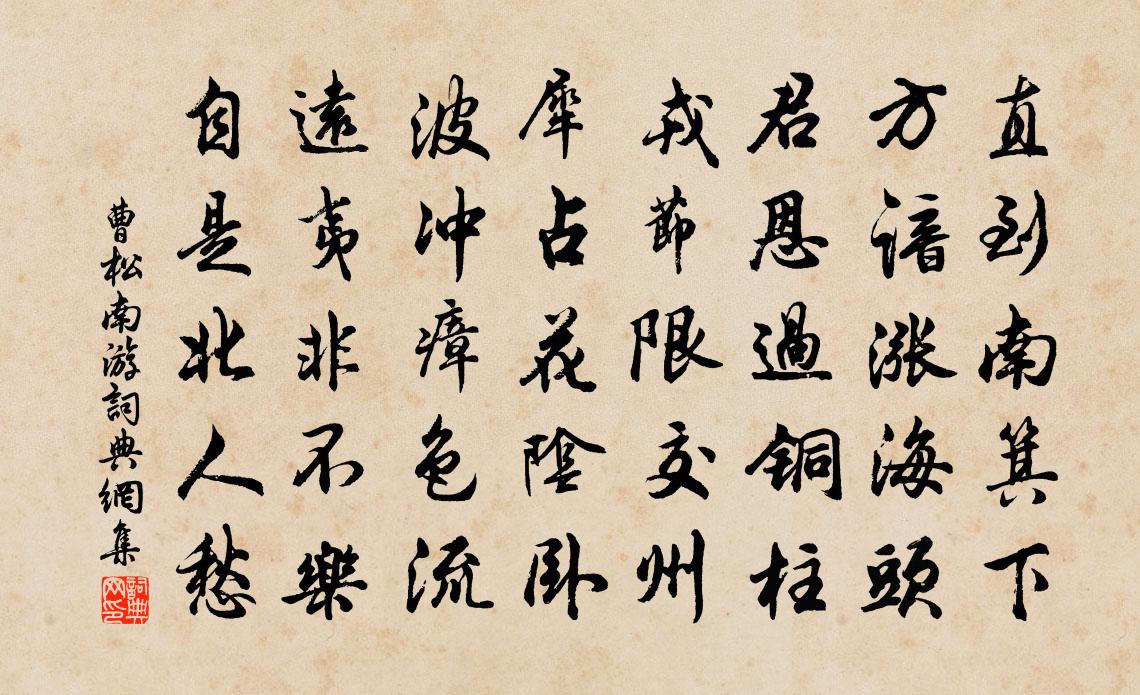 直到南箕下
方諳漲海頭
君恩過銅柱
戎節限交州
犀占花陰卧
波冲瘴色流
遠夷非不樂
自是北人愁
曹松南游詞典網集
詞典网印